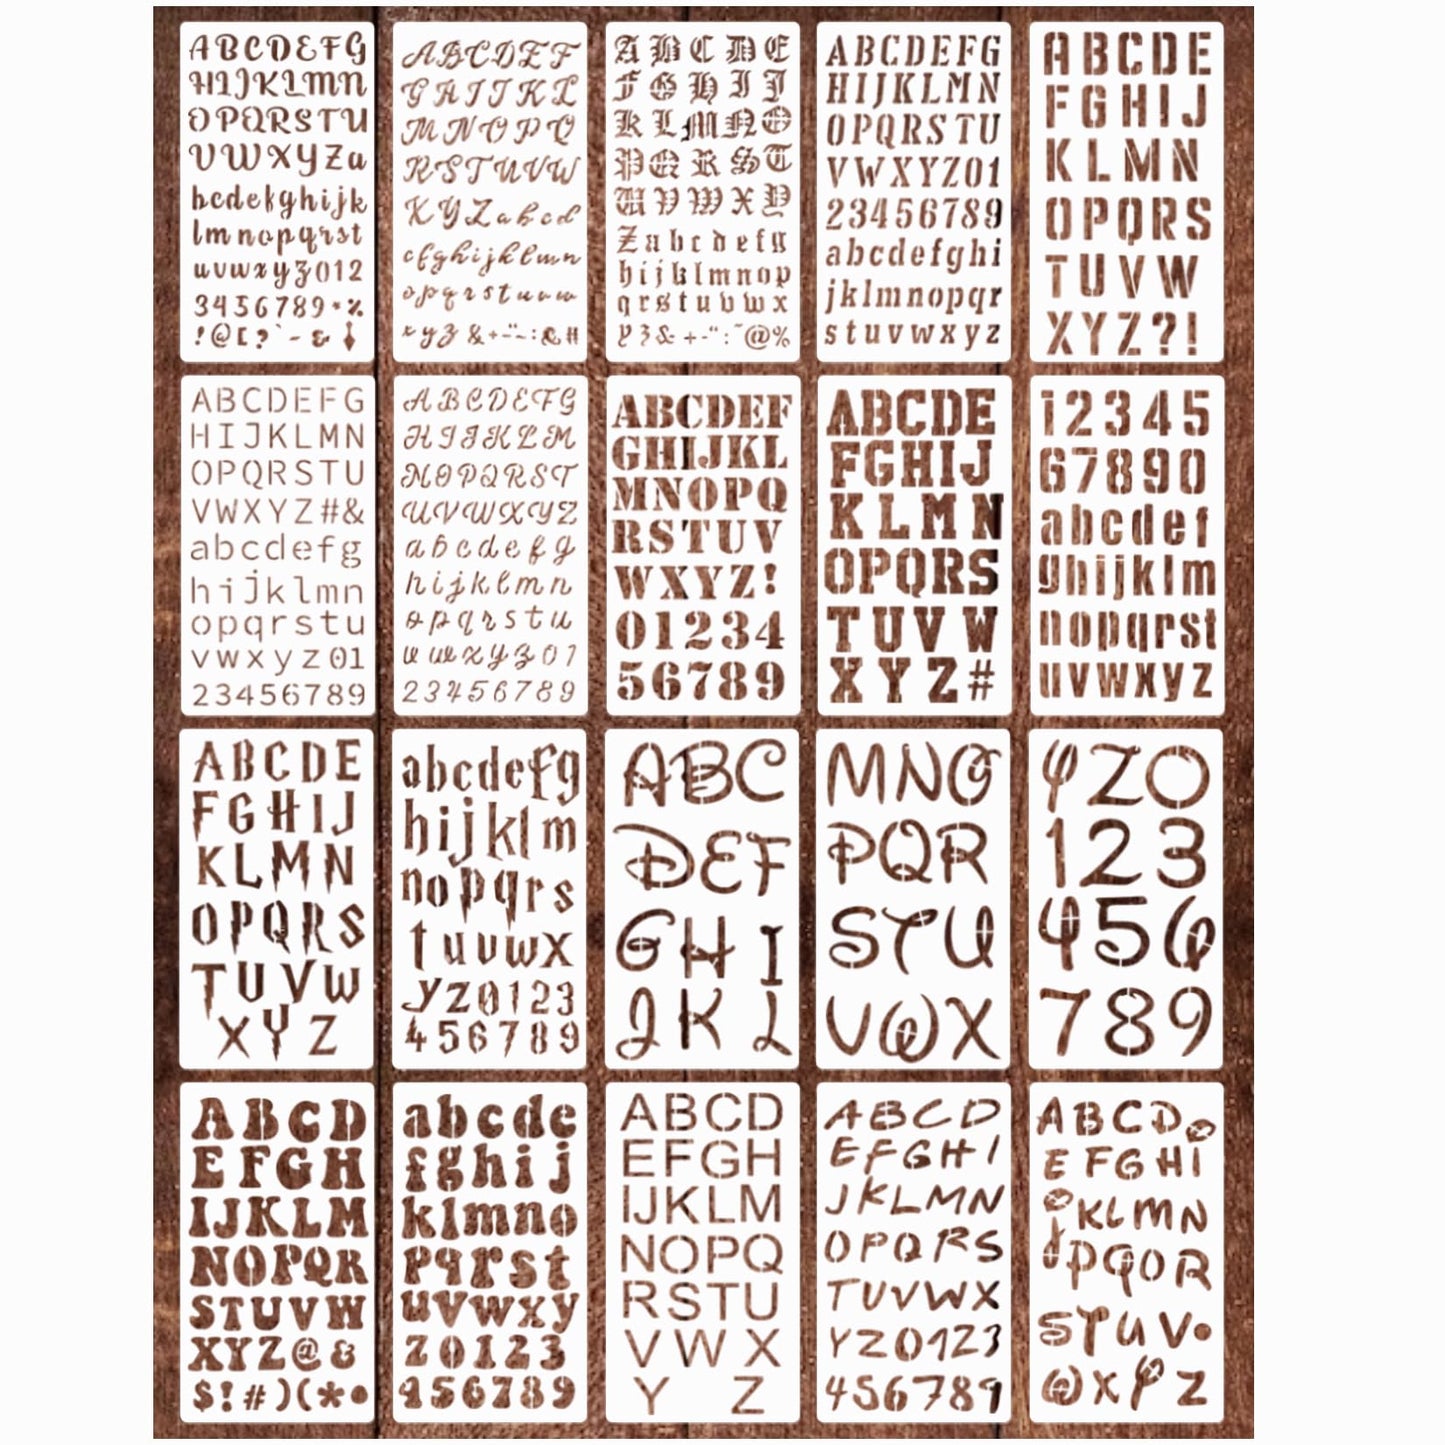 ABCDEFG
HIJKLMN
OPQRSTU
VWXYZa
bcdefghijk
lmnopqrst
uvwxyz012
3456789*%
ABCDEF
GHIJKL
MNOPQ
RSTUVW
XYZabcd
efghijklmn
opqrstuvw
xyz &+-"~:&#
ABCDE
FGHIJ
KLMNO
PQRST
UVWXY
Zabcdefg
hijklmnop
qrstuvwx
yz& +-":~@%
ABCDEFG
HIJKLMN
OPQRSTU
VWXYZ01
23456789
abcdefghi
jklmnopqr
stuvwxyz
ABCDE
FGHIJ
KLMN
OPQRS
TUVW
XYZ?!
ABCDEFG
HIJKLMN
OPQRSTU
VWXYZ#&
abcdefg
hijklmn
opqrstu
vwxyz01
23456789
ABCDEFG
HIJKLM
NOPQRST
UVWXYZ
abcdefg
hijklmn
opqrstu
vwxyz01
23456789
ABCDEF
GHIJKL
MNOPQ
RSTUV
WXYZ!
01234
56789
ABCDE
FGHIJ
KLMN
OPQRS
TUVW
XYZ#
12345
67890
abcdef
ghijklm
nopqrst
uvwxyz
ABCDE
FGHIJ
KLMN
OPQRS
TUVW
XYZ
abcdefg
hijklm
nopqrs
tuvwx
yz0123
456789
ABC
DEF
GHI
JKL
MNO
PQR
STU
VWX
YZ0
123
456
789
ABCD
EFGH
IJKLM
NOPQR
STUVW
XYZ@&
$!#)(*•
abcde
fghij
klmno
pqrst
uvwxy
z0123
456789
ABCD
EFGH
IJKLM
NOPQ
RSTU
VWX
YZ
ABCD
EFGHI
JKLMN
OPQRS
TUVWX
YZ0123
456789
ABCD
EFGHI
KLMN
PQOR
STUV
WXYZ